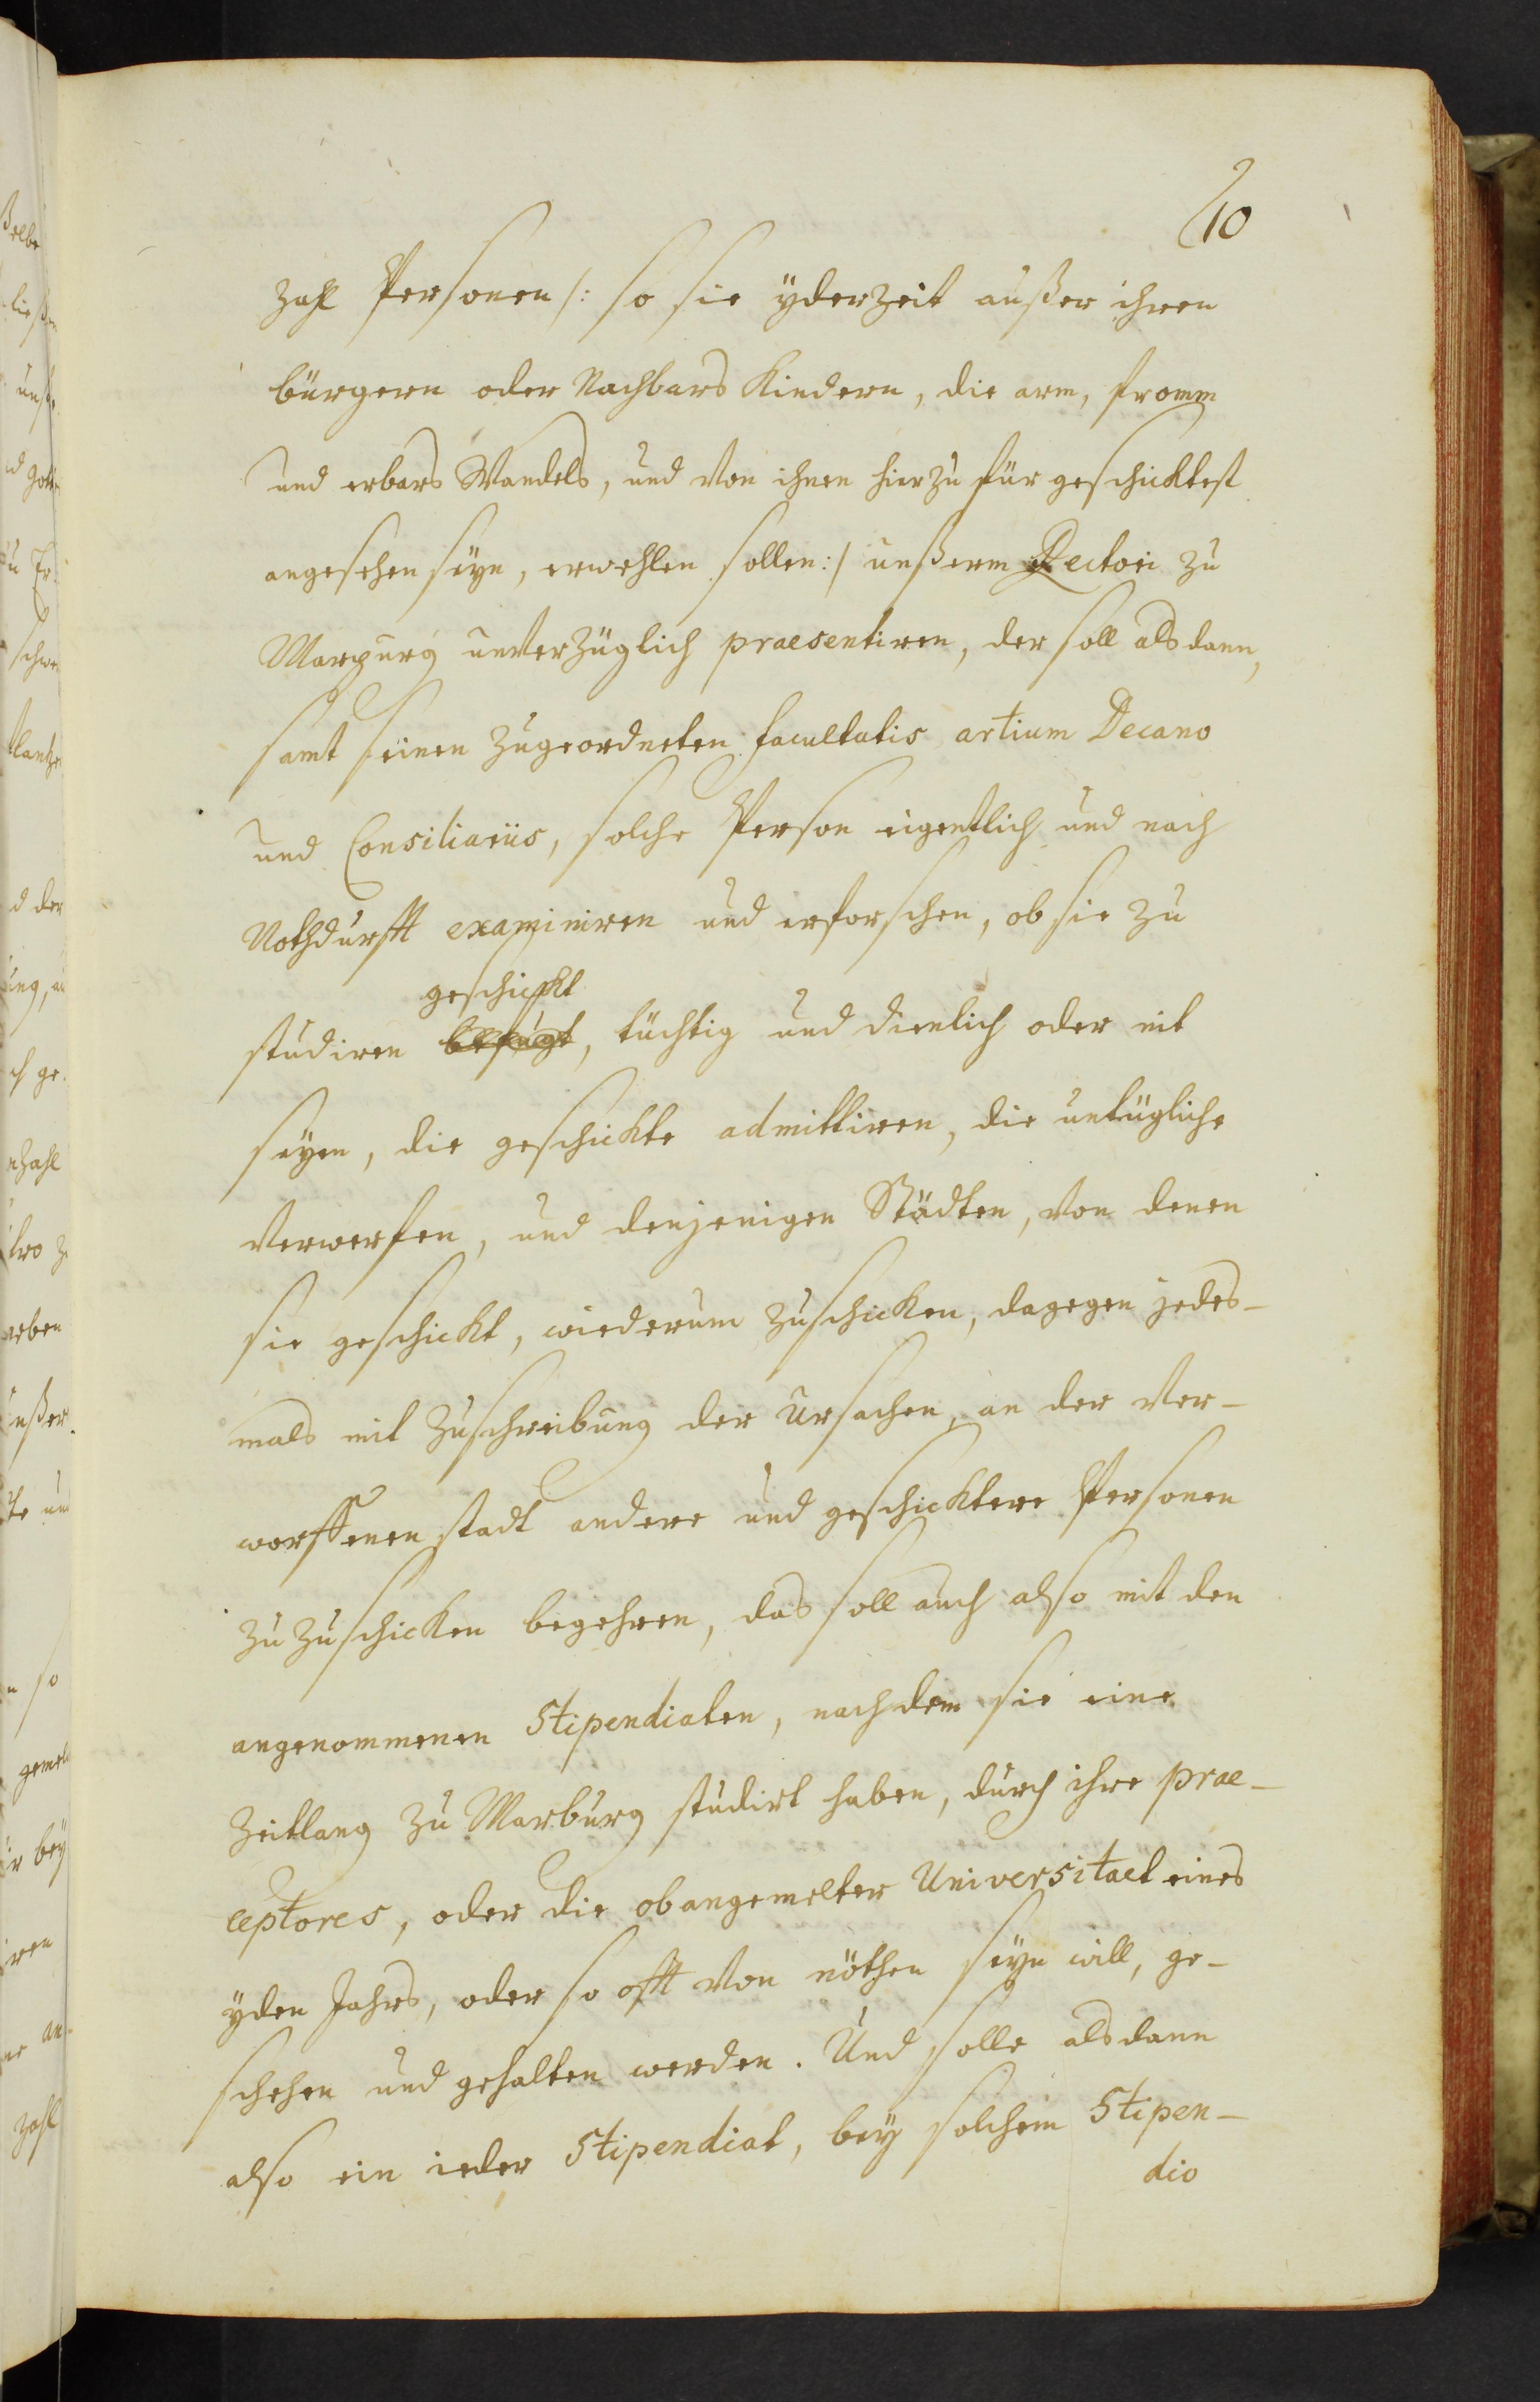 10
zahl Personen /: so sie yderzeit außer ihren
bürgern oder Nachbars Kindern, die arm, fromm
und erbars Wandels, und von ihnen hierzu für geschicktest
angesehen seyn, erwehlen sollen :/ unßerm Rectori zu
Marpurg unverzüglich praesentiren, der soll alsdann,
samt seinen zugeordneten facultatis artium Decano
und Consiliariis, solche Person eigentlich und nach
Nothdurfft examiniren und erforschen, ob sie zu
geschickt
studiren befügt, tüchtig und dienlich oder nit
seyen, die geschickte admittiren, die untügliche
verwerfen, und denjenigen Städten, von denen
sie geschickt, wiederum zuschicken, dagegen jedes-
mals mit Zuschreibung der Ursachen, an der ver-
worffenen stadt andere und geschicktere Personen
zuzuschicken begehren, das soll auch also mit den
angenommenen Stipendiaten, nachdem sie eine
Zeitlang zu Marburg studirt haben, durch ihre prae-
ceptores, oder die obangemelter Universitaet eines
yden Jahrs, oder so offt von nöthen seyn will, ge-
schehen und gehalten werden. Und solle alsdann
also ein ieder Stipendiat, bey solchem Stipen-
dio